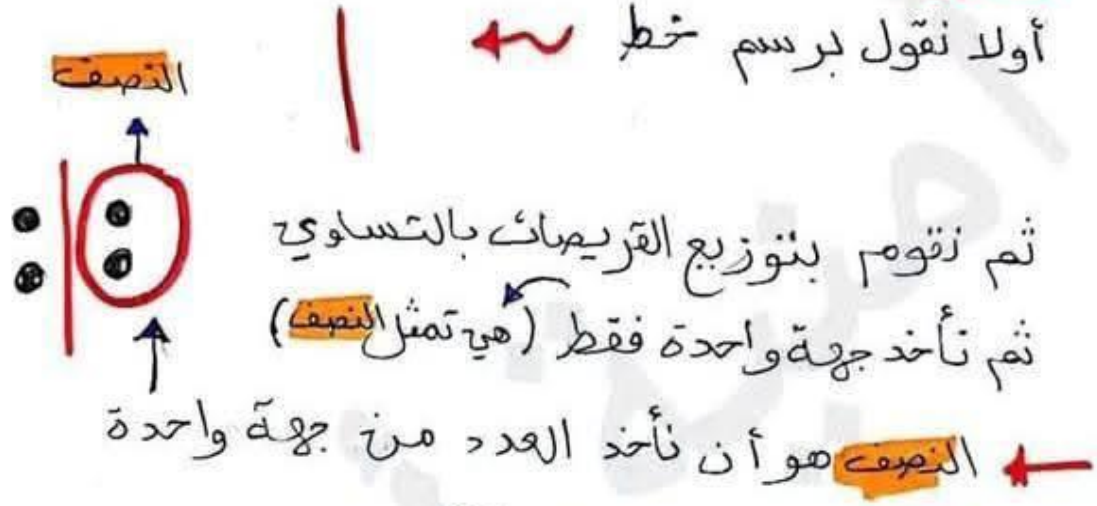 أولا نقول برسم خط
النصف
ثم نقوم بتوزيع القريصات بالتساوي
ثم نأخد جهة واحدة فقط (هي تمثل النصف)
النصف هو أن نأخد العدد من جهة واحدة